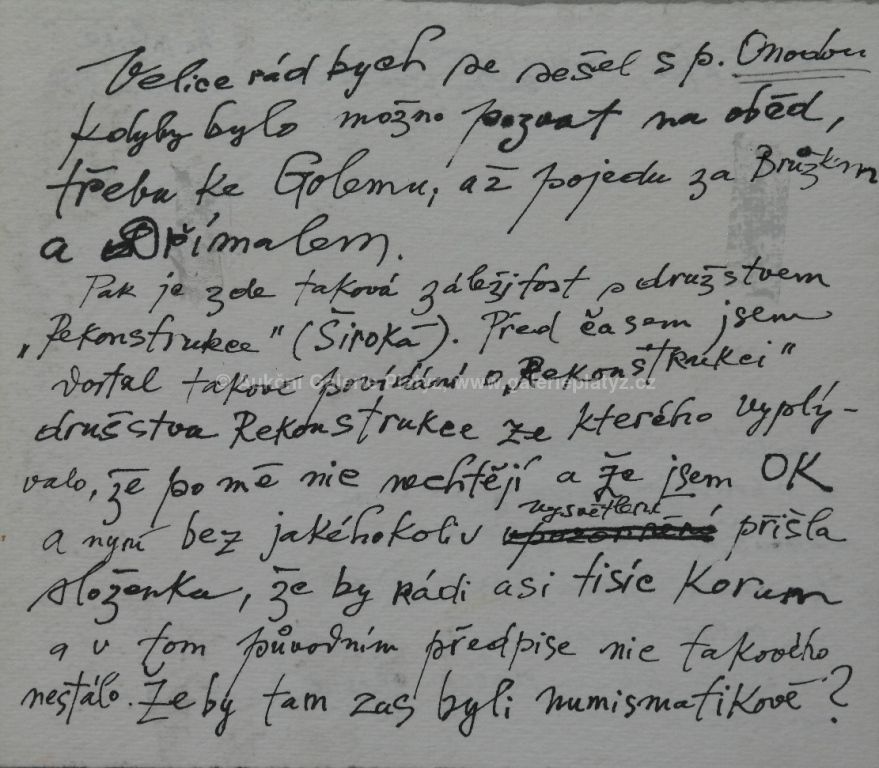 Velice rád bych se sešel s p. Onodou
kdyby bylo možno pozvat na oběd,
třeba ke Golemu, až pojedu za Brůžkem
a Dřímalem.
Pak je zde taková záležitost s družstvem
„Rekonstrukce" (Široká). Před časem jsem
dostal takové povídání o „Rekonstrukci"
© Aukční Galerie Platýz, www.galerieplatyz.cz
družstva Rekonstrukce ze kterého vyplý-
valo, že po mě nic nechtějí a že jsem OK
a nyní bez jakéhokoliv vysvětlení přišla
složenka, že by rádi asi tisíc korun
a v tom původním předpise nic takového
nestálo. Že by tam zas byli numismatikové?